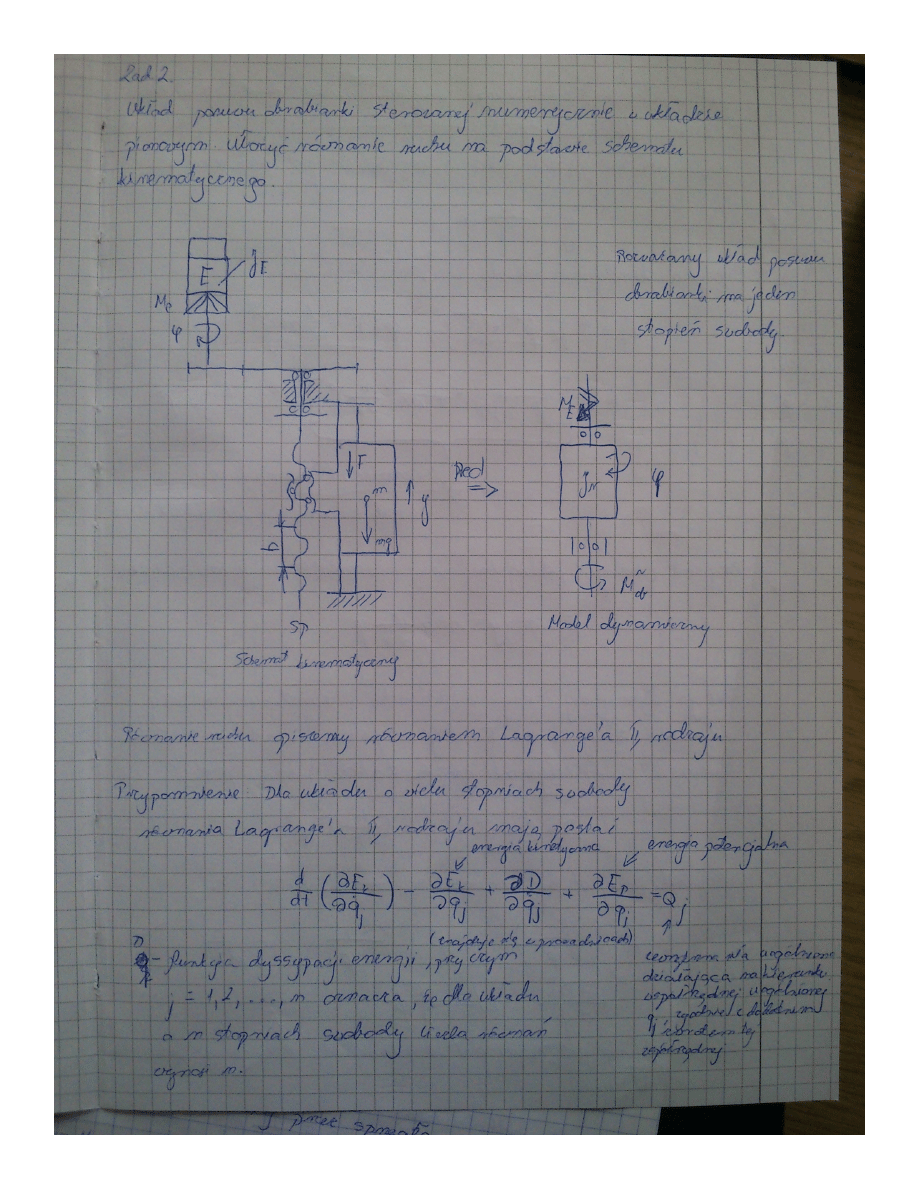 Zad 2.
Układ posuwu obrabiarki sterowanej numerycznie w układzie
pionowym. Ułożyć równanie ruchu na podstawie schematu
kinematycznego.
Rozważany układ posuwu
obrabiarki ma jeden
stopień swobody.
E
J_E
M_E
φ
T
m
mg
y
h
Sp
Schemat kinematyczny
Red
⇒
M_E
φ
Model dynamiczny
Równanie ruchu opiszemy równaniem Lagrange'a II rodzaju
Przypomnienie Dla układu o wielu stopniach swobody
równania Lagrange'a II rodzaju mają postać
energia kinetyczna
energia potencjalna
d/dt (∂E_k/∂q̇_j) − ∂E_k/∂q_j + ∂D/∂q̇_j + ∂E_p/∂q_j = Q_j
(znajduje się w prowadnicach)
D - funkcja dyssypacji energii, przy czym
j = 1,2, ..., n oznacza, że dla układu
o n stopniach swobody liczba równań
wynosi n.
uogólniona
działająca na kierunku
współrzędnej uogólnionej
q_j zgodnie z dodatnim
zwrotem tej
współrzędnej
przez